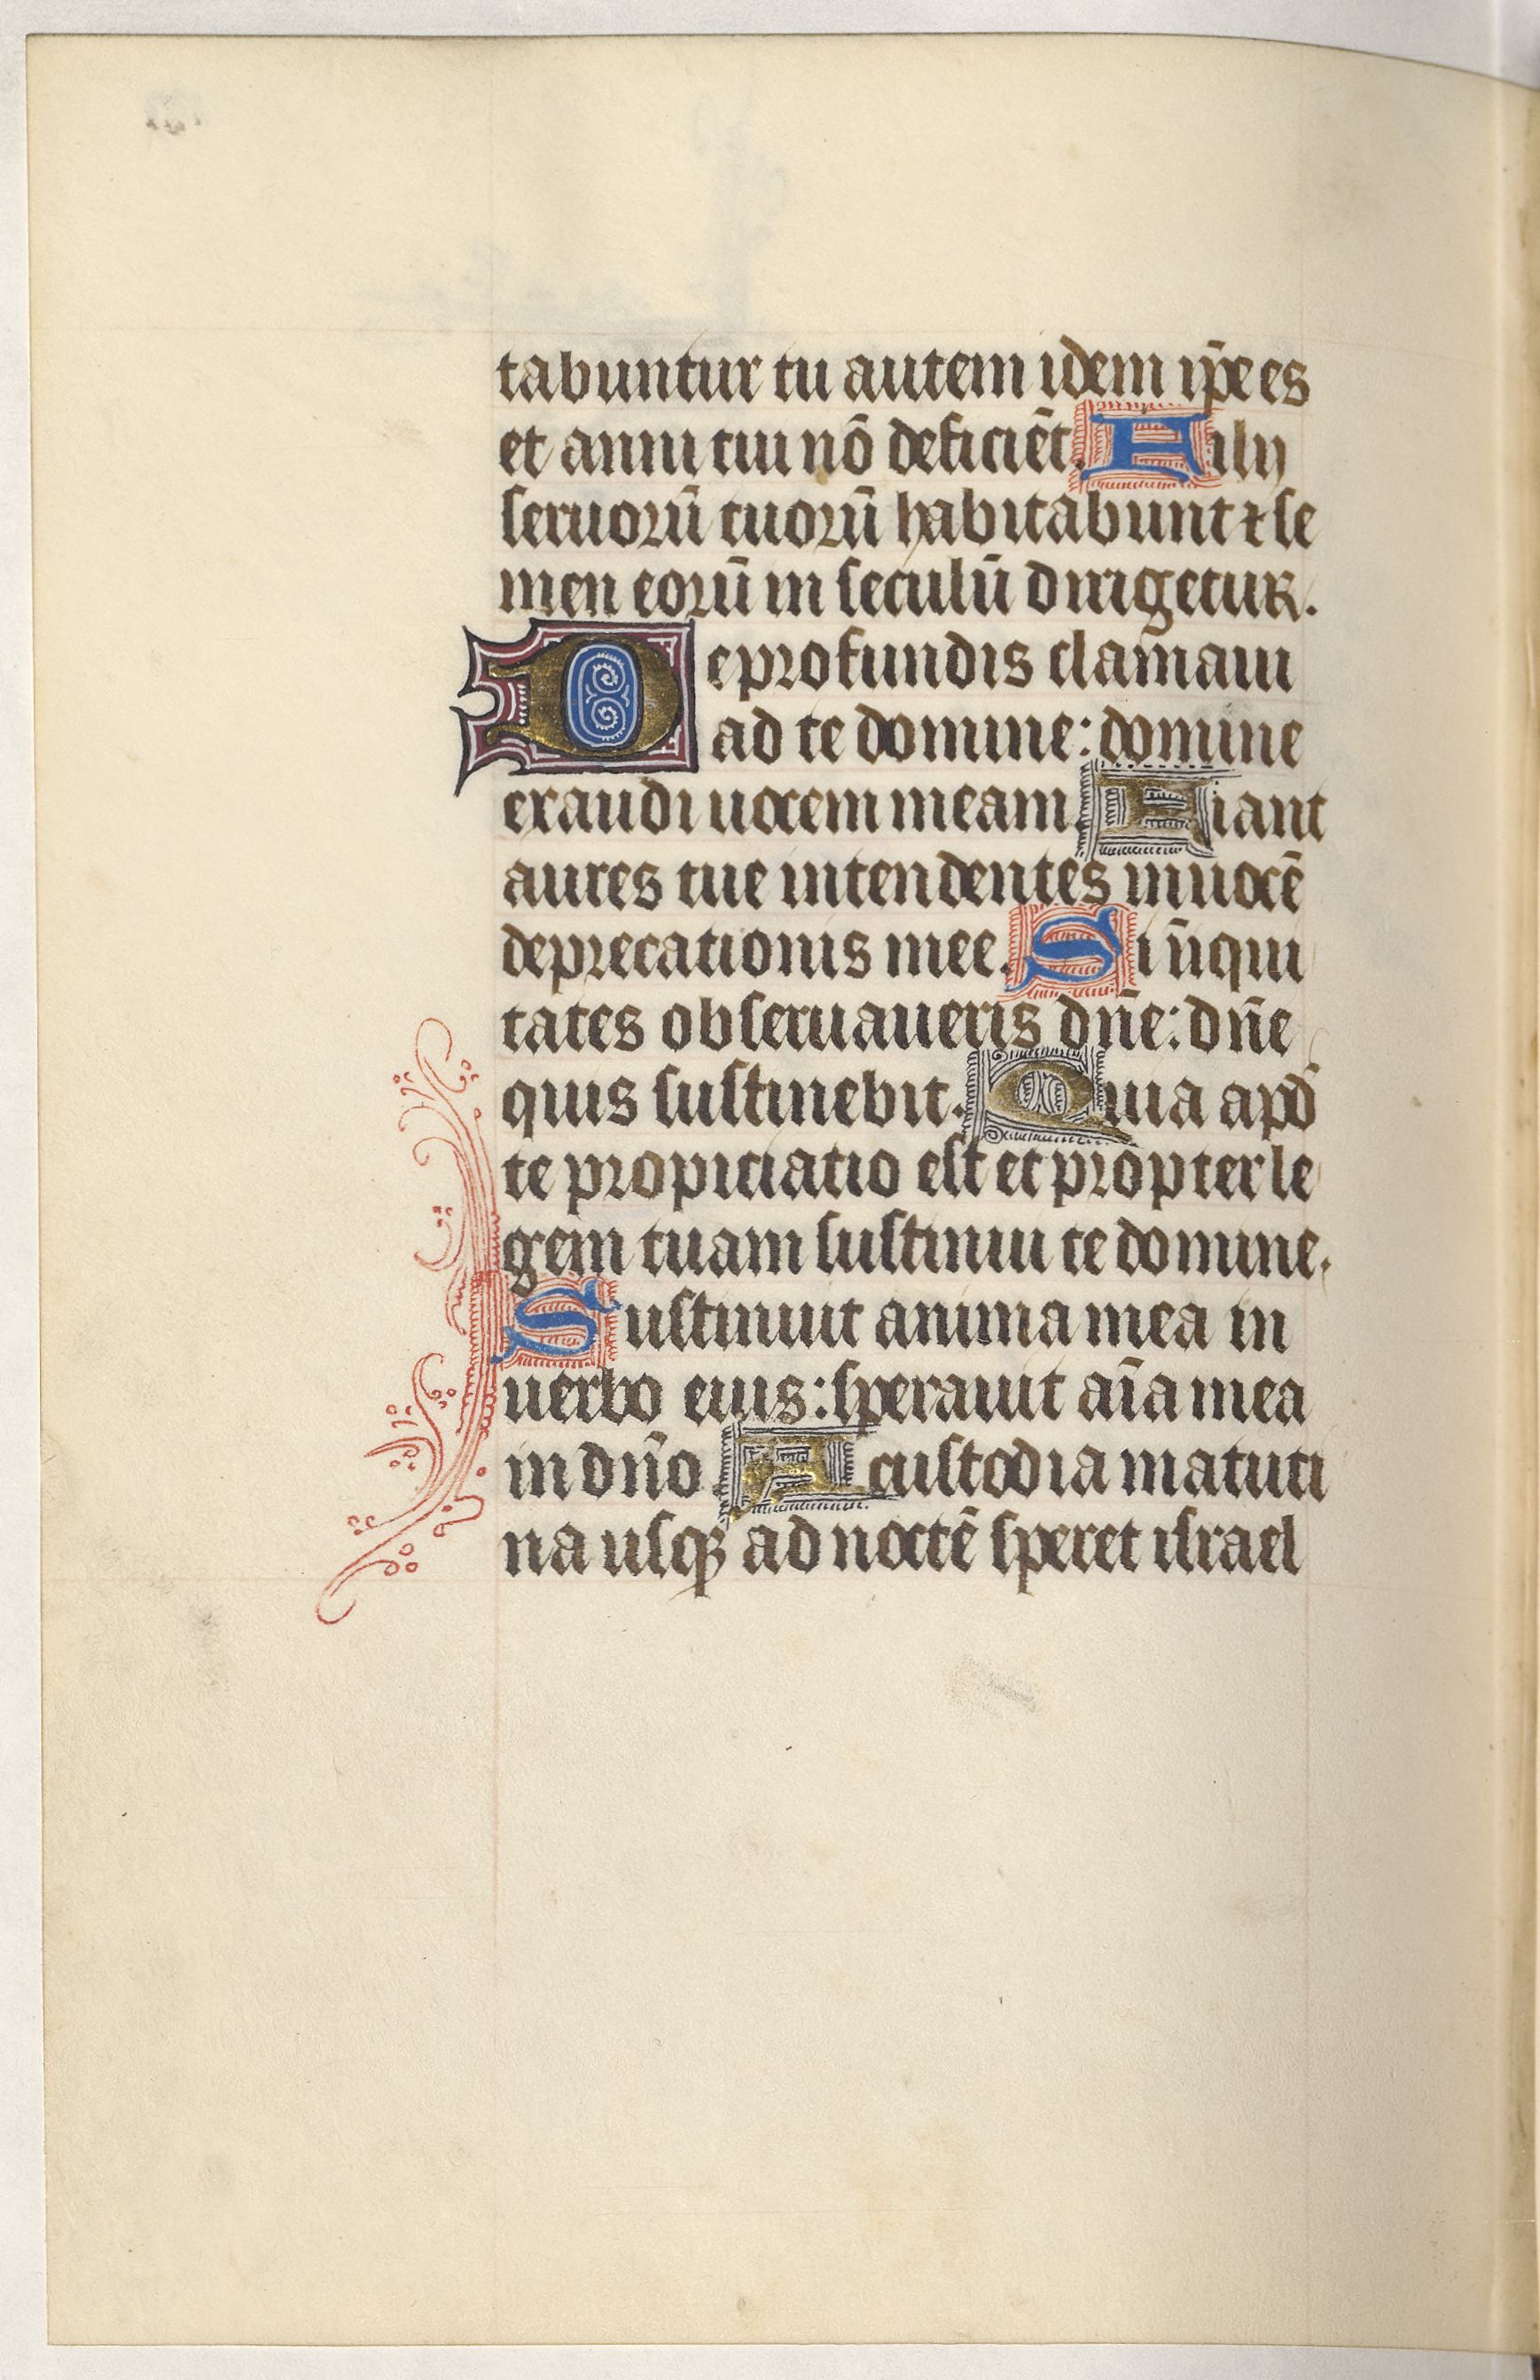 tabuntur tu autem idem ip̄e es
et anni tui nō deficiēt. Filij
seruorū tuorū habitabunt ⁊ se
men eorū in seculū dirigetur.
De profundis clamaui
ad te domine: domine
exaudi uocem meam. Fiant
aures tue intendentes in uocē
deprecationis mee. Si iniqui
tates obseruaueris dn̄e: dn̄e
quis sustinebit. Quia apd̄
te propiciatio est et propter le
gem tuam sustinui te domine.
Sustinuit anima mea in
uerbo eius: sperauit aīa mea
in dn̄o. A custodia matuti
na usqꝫ ad noctē speret israel